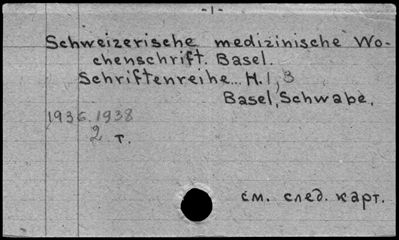 -1-
Schweizerische medizinische Wo-
chenschrift. Basel.
Schriftenreihe... H.1,3
Basel, Schwabe,
1936.1938
2 т.
см. след. карт.